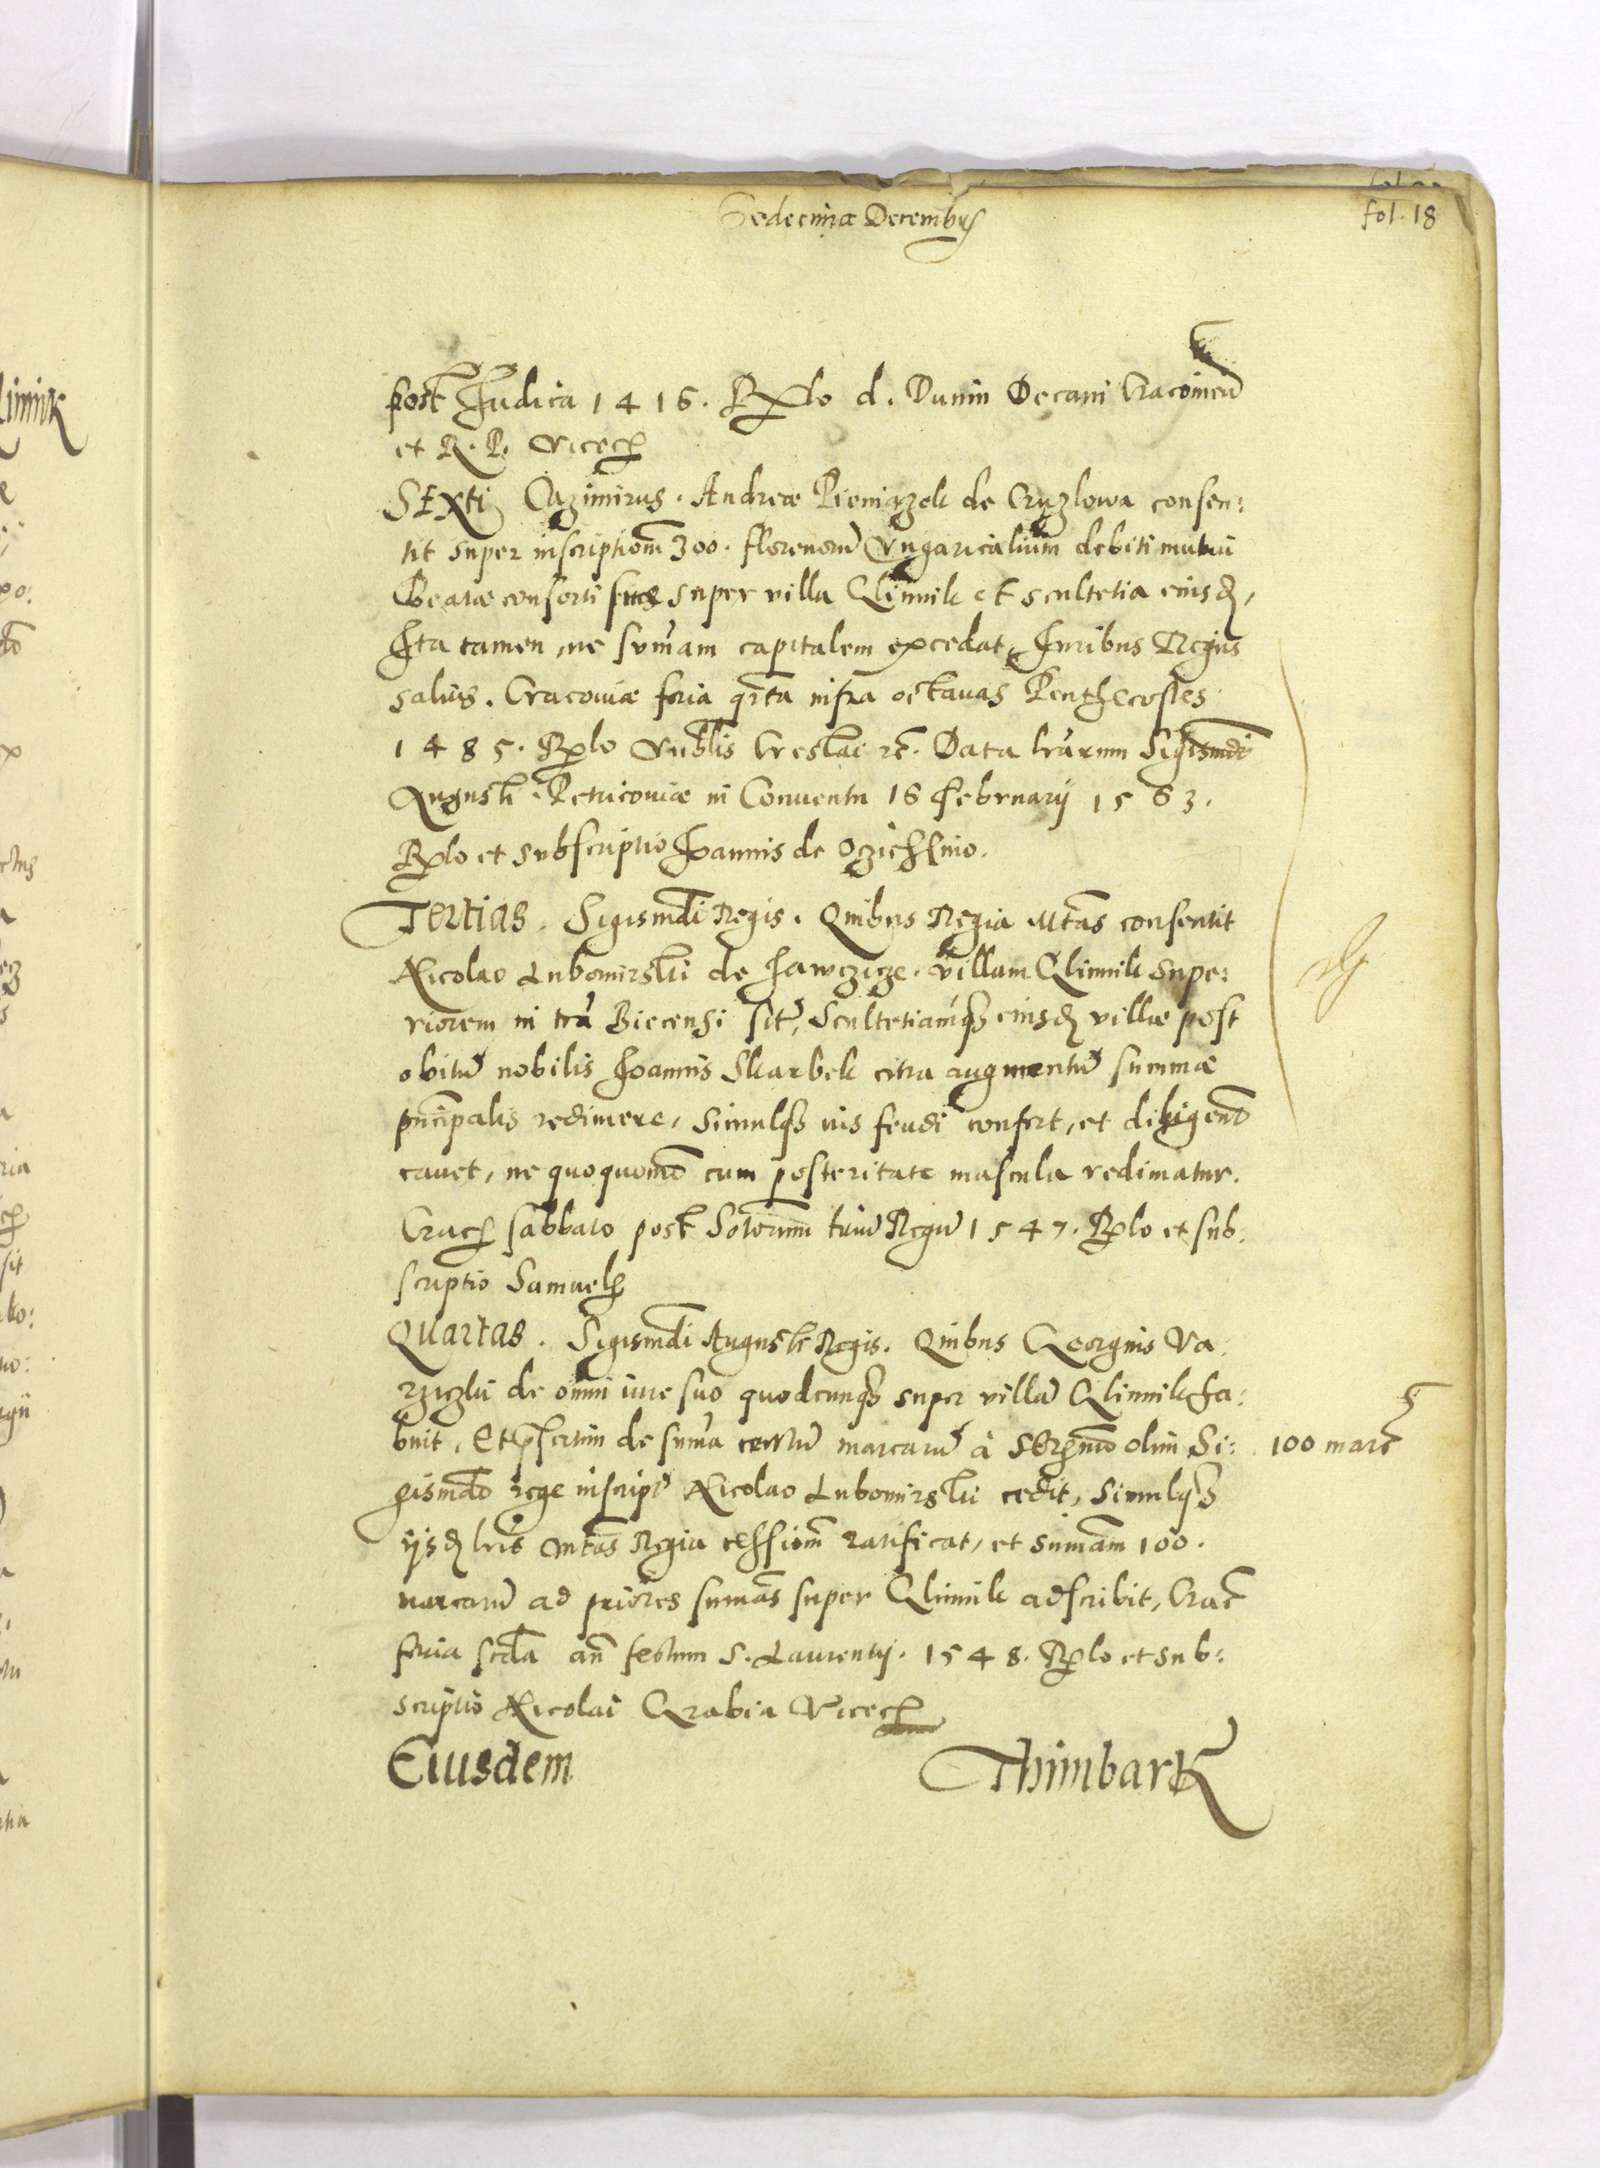 Sedecima Decembris
fol. 18
post Judica 1416. Rlo d. Dunin Decani Cracouien
et R. P. Vicecan
SExti Cazimirus. Andreæ Pieniązek de Cruzlowa consen:
tit super inscriptionem 300. florenorum Vngaricalium debiti mutui
Beatæ consorti suæ super villa Climik et scultetia eiusdem,
Ita tamen, ne summam capitalem excedat, Juribus Regiis
saluis. Cracouiæ feria quinta infra octauas Penthecostes
1485. Rlo Creslai etc. Data literarum Sigismdi
Augusti. Petricouiæ in Conuentu 16 Februarij 1563.
Rlo et subscriptio Joannis de Oczieschino.
Tertias. Sigismdi Regis. Quibus Regia Mtas consentit
Nicolao Lubomirski de villam Climik supe:
riorem in tra Biecensi sitam, Scultetiamque eiusdem villæ post
obitum nobilis Joannis Skarbek citra augmentum summæ
principalis redimere, Simulque ius feudi confert, et diligenter
cauet, ne quoquomodo cum posteritate mascula redimatur.
Crac sabbato post Sctorum trium Regum 1547. Rlo et sub:
scriptio Samuelis
Quartas. Sigismdi Augusti Regis. Quibus Georgius Va:
rziczki de omni iure suo quodcunque super villam Climik ha:
buit, Et presertim de summa centum marcarum à Serenissimo olim Si:
100 marc
gismdo rege inscripta Nicolao Lubomirski cedit, Simulque
ijsdem lris Mtas Regia cessionem ratificat, et summam 100.
marcarum ad priores summas super Climik adscribit, Crac
feria scda ante festum S. Laurentij. 1548. Rlo et sub:
scriptio Nicolai Grabia Vicecan
Eiusdem Thimbark